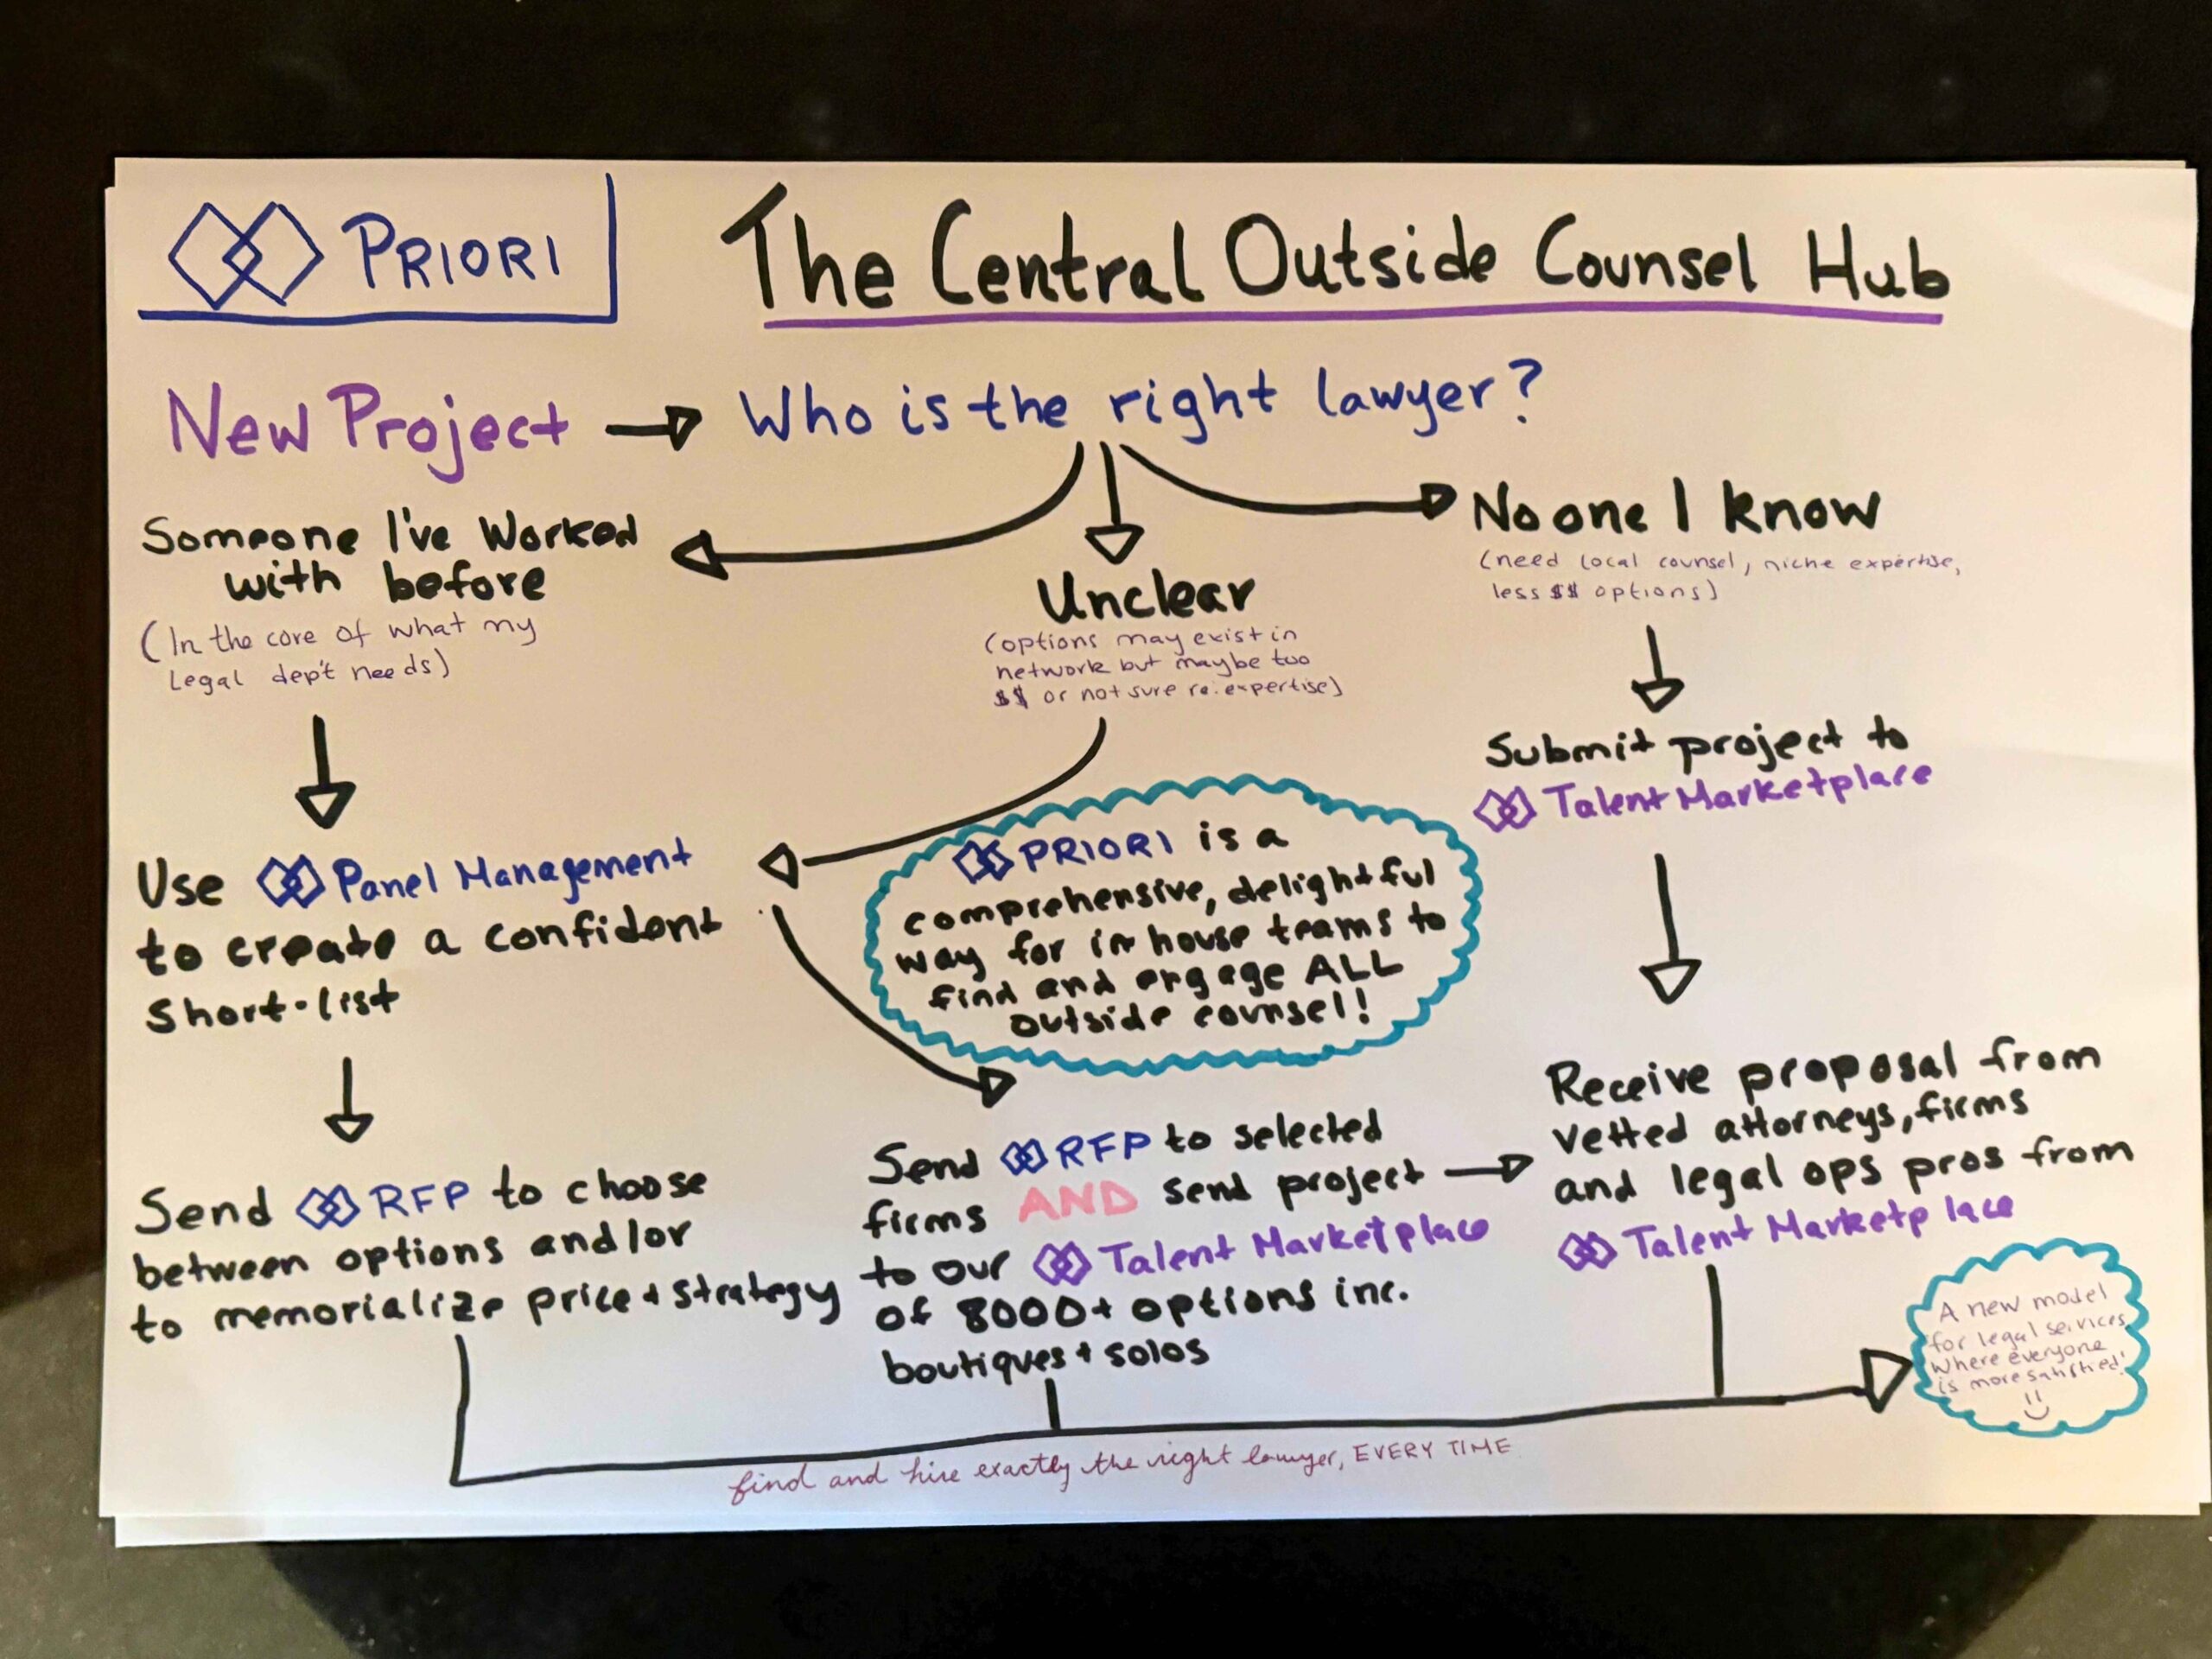 PRIORI
The Central Outside Counsel Hub
New Project
Who is the right lawyer?
Someone I've Worked
with before
(In the core of what my
Legal dep't needs)
Unclear
(options may exist in
network but maybe too
$$ or not sure re: expertise)
No one I know
(need local counsel, niche expertise,
less $$ options)
Submit project to
Talent Marketplace
Use Panel Management
to create a confident
Short-list
PRIORI is a
comprehensive, delightful
way for in house teams to
find and engage ALL
outside counsel!
Send RFP to choose
between options and/or
to memorialize price + strategy
Send RFP to selected
firms AND send project
to our Talent Marketplace
of 8000+ options inc.
boutiques + solos
Receive proposal from
vetted attorneys, firms
and legal ops pros from
Talent Marketplace
A new model
for legal services
Where everyone
is more satisfied!
find and hire exactly the right lawyer, EVERY TIME